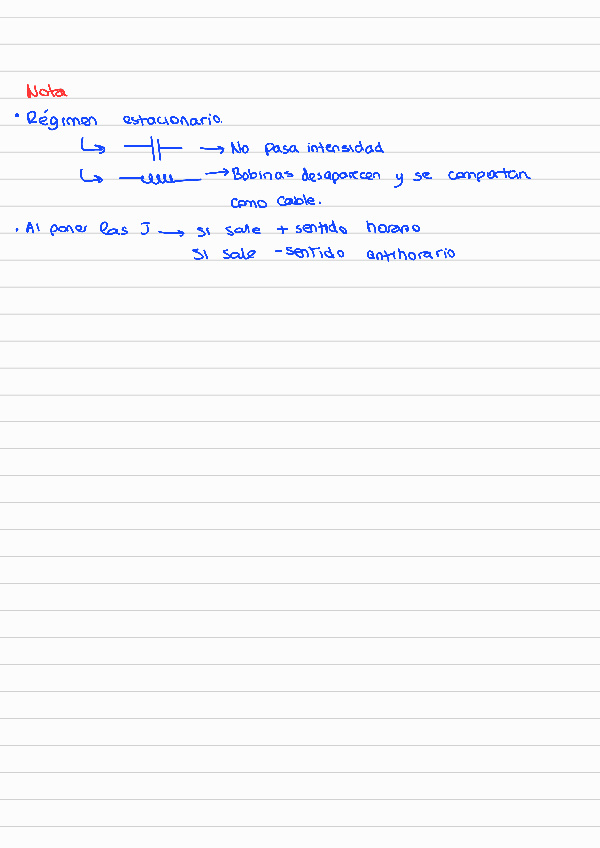 Nota
• Régimen estacionario.
↳ → No pasa intensidad
↳ → Bobinas desaparecen y se comportan
como cable.
• Al poner las J → si sale + sentido horario
si sale - sentido antihorario